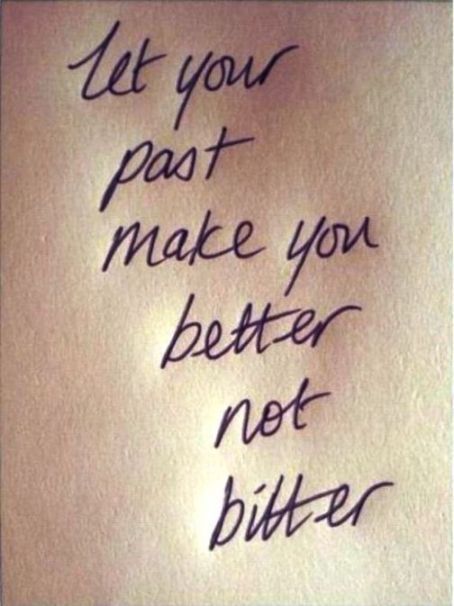 Let your
past
make you
better
not
bitter